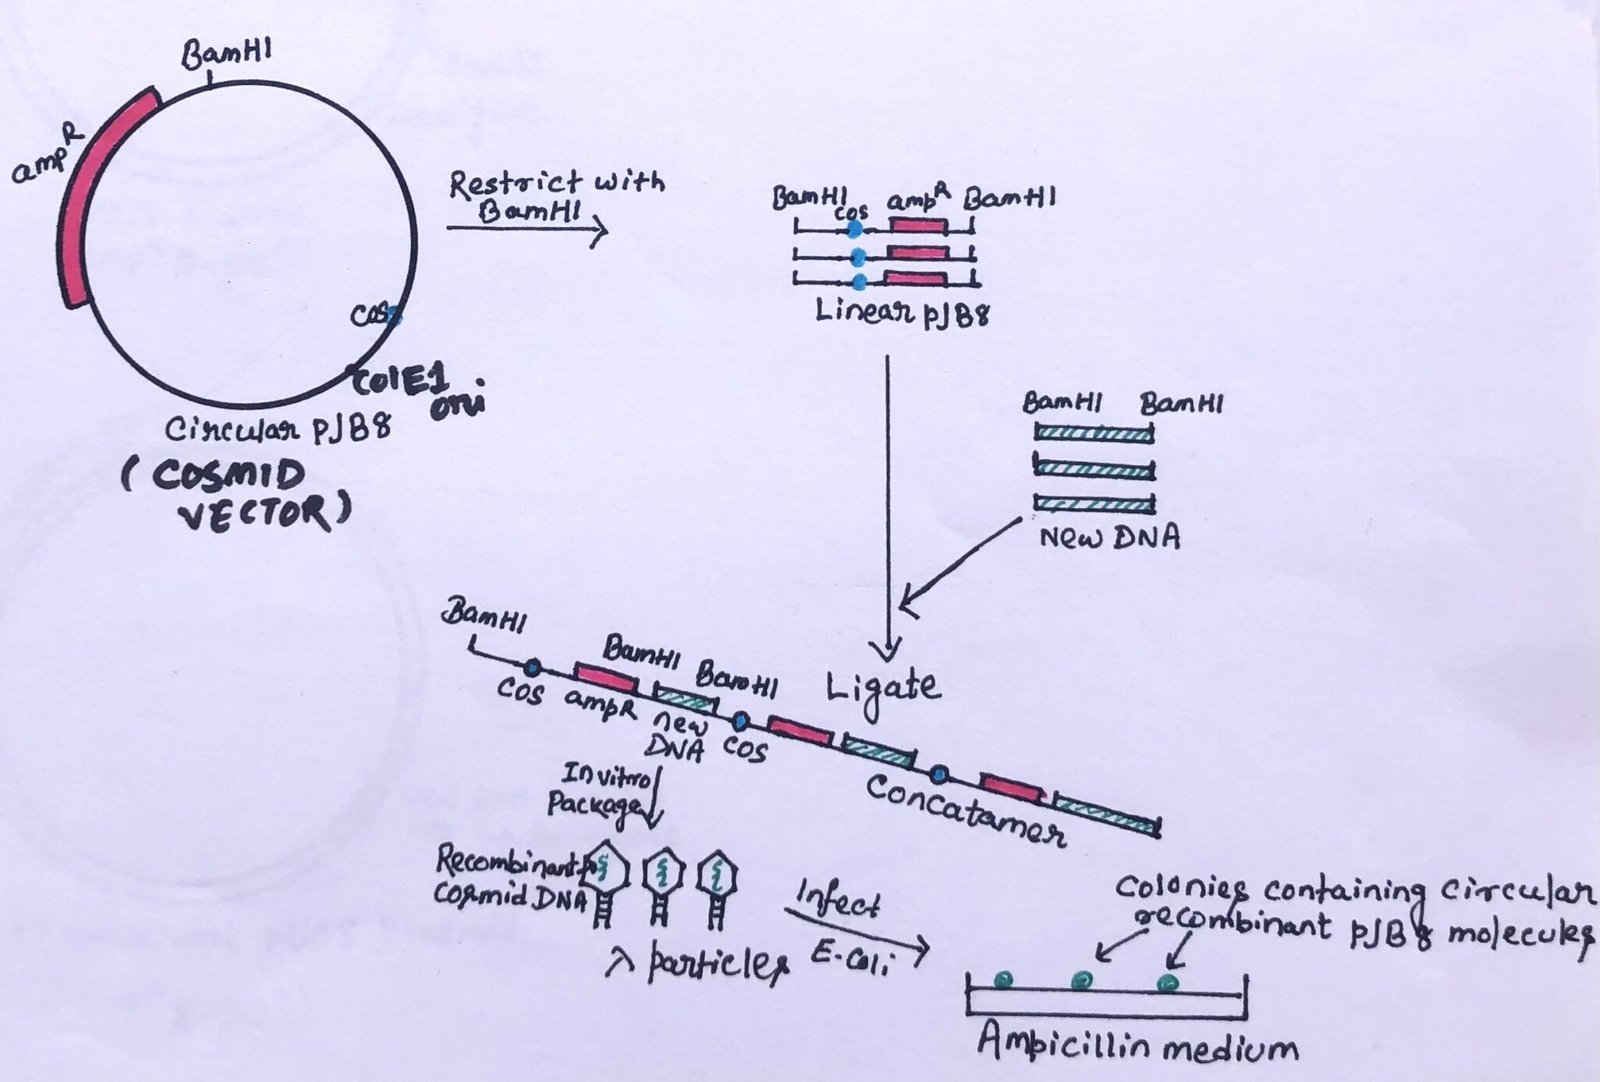 BamHI
ampR
Restrict with
BamHI
cos
ColE1
ori
Circular pJB8
(COSMID
VECTOR)
BamHI
cos
ampR
BamHI
Linear pJB8
BamHI BamHI
New DNA
Ligate
BamHI
BamHI
BamHI
cos
ampR
new
DNA
cos
Concatamer
Invitro
Package
Recombinant
cosmid DNA
λ particles
Infect
E.coli
Colonies containing circular
recombinant pJB8 molecules
Ampicillin medium